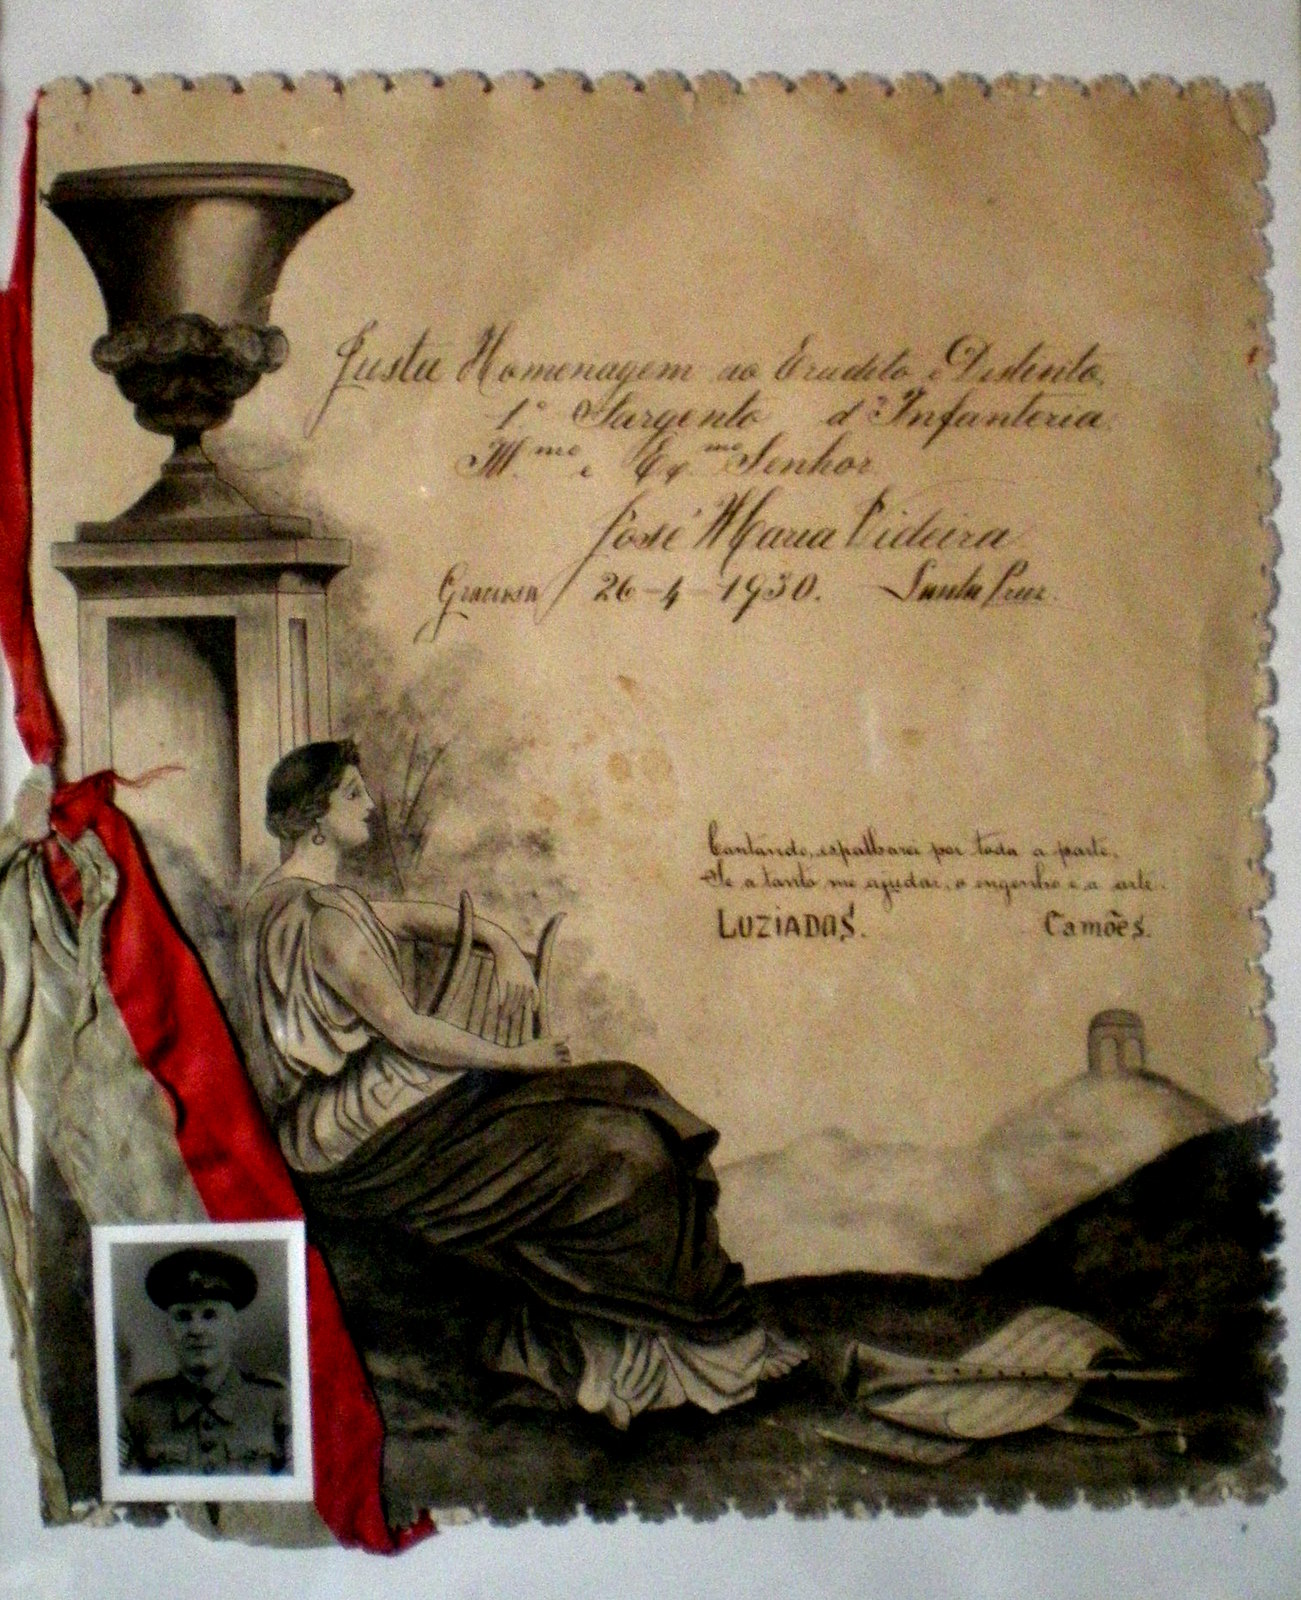 Justa Homenagem ao Erudito e Distinto,
1º Sargento d'Infanteria
Ill.mo e Ex.mo Senhor
José Maria Videira
Graciosa 26-4-1930. Santa Cruz.
Cantando, espalharei por toda a parte,
Se a tanto me ajudar, o engenho e a arte.
LUZIADAS. Camões.